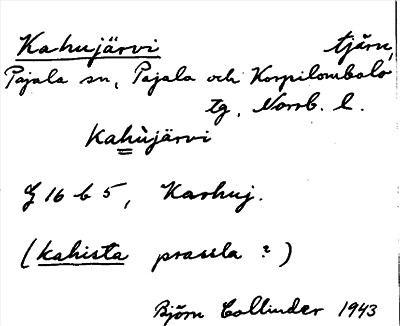 Kahujärvi tjärn,
Pajala sn, Pajala och Korpilombolo
tg, Norrb. l.
kahùjärvi
16 b 5, Karhuj.
(kahista prassla ?)
Björn Collinder 1943